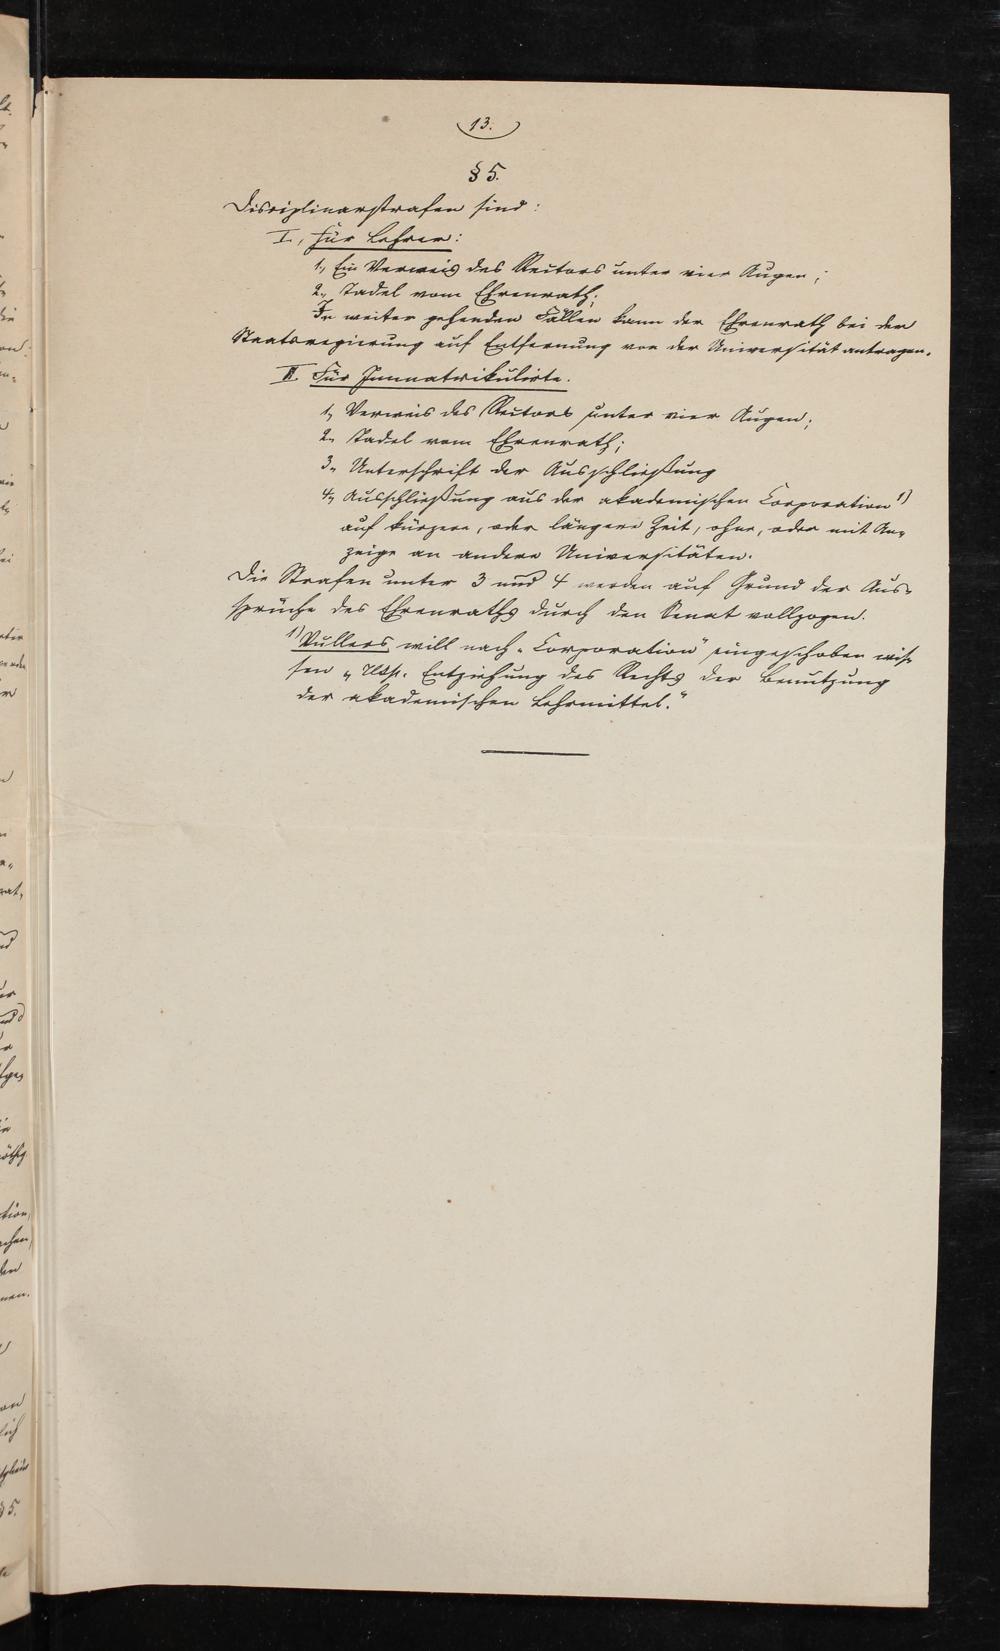 13.
§ 5.
Disciplinarstrafen sind:
I., für Lehrer:
1, Ein Verweis des Rectors unter vier Augen;
2, Tadel vom Ehrenrath;
In weiter gehenden Fällen kann der Ehrenrath bei der
Staatsregierung auf Entfernung von der Universität antragen.
II. Für Immatrikulirte.
1, Verweis des Rectors unter vier Augen;
2, Tadel vom Ehrenrath;
3, Unterschrift der Ausschließung
4, Ausschließung aus der akademischen Corporation 1)
auf kürzere, oder längere Zeit, ohne, oder mit An-
zeige an andere Universitäten.
Die Strafen unter 3 und 4 werden auf Grund der Aus-
sprüche des Ehrenraths durch den Senat vollzogen.
1) Vullers will nach „Corporation" eingeschoben wis-
sen „ Entziehung des Rechts der Benutzung
der akademischen Lehrmittel."